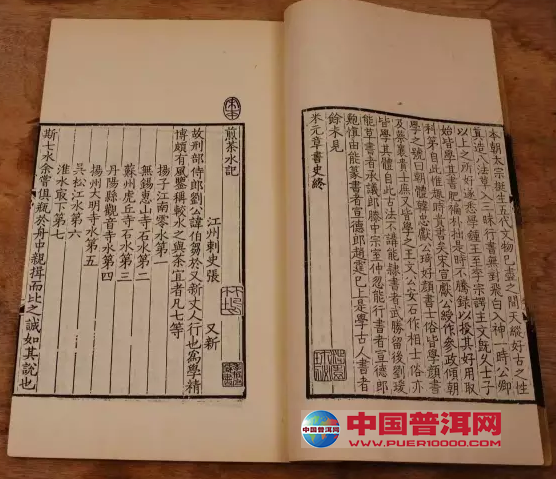 本朝太宗挺生五代文物已盡之間天縱好古之性
真造八法草入三昧行書無對飛白入神一時公卿
以上之所好遂悉學鍾王至李宗諤主文既久士子
始皆學其書肥褊朴拙是時不謄錄以投其好用取
科第自此惟趣時貴書矣宋宣獻公綬作參政傾朝
學之號曰朝體韓忠獻公琦好顏書士俗皆學顏書
及蔡襄貴士庶又皆學之王文公安石作相士俗亦
皆學其體自此古法不講能隸書者武勝留後劉瑗
能草書者承議郎滕中宗室仲忽能行書者宣德郎
鮑慎由能篆書者宣德郎趙霆已上是學古人書者
餘未見
米元章書史終
煎茶水記
江州刺史張又新
故刑部侍郎劉公諱伯芻於又新丈人行也為學精
博頗有風鑒稱較水之與茶宜者凡七等
揚子江南零水第一
無錫惠山寺石水第二
蘇州虎丘寺石水第三
丹陽縣觀音寺水第四
揚州大明寺水第五
吳松江水第六
淮水最下第七
斯七水余嘗俱瓶於舟中親挹而比之誠如其說也
中国普洱网
WWW.PUER10000.COM